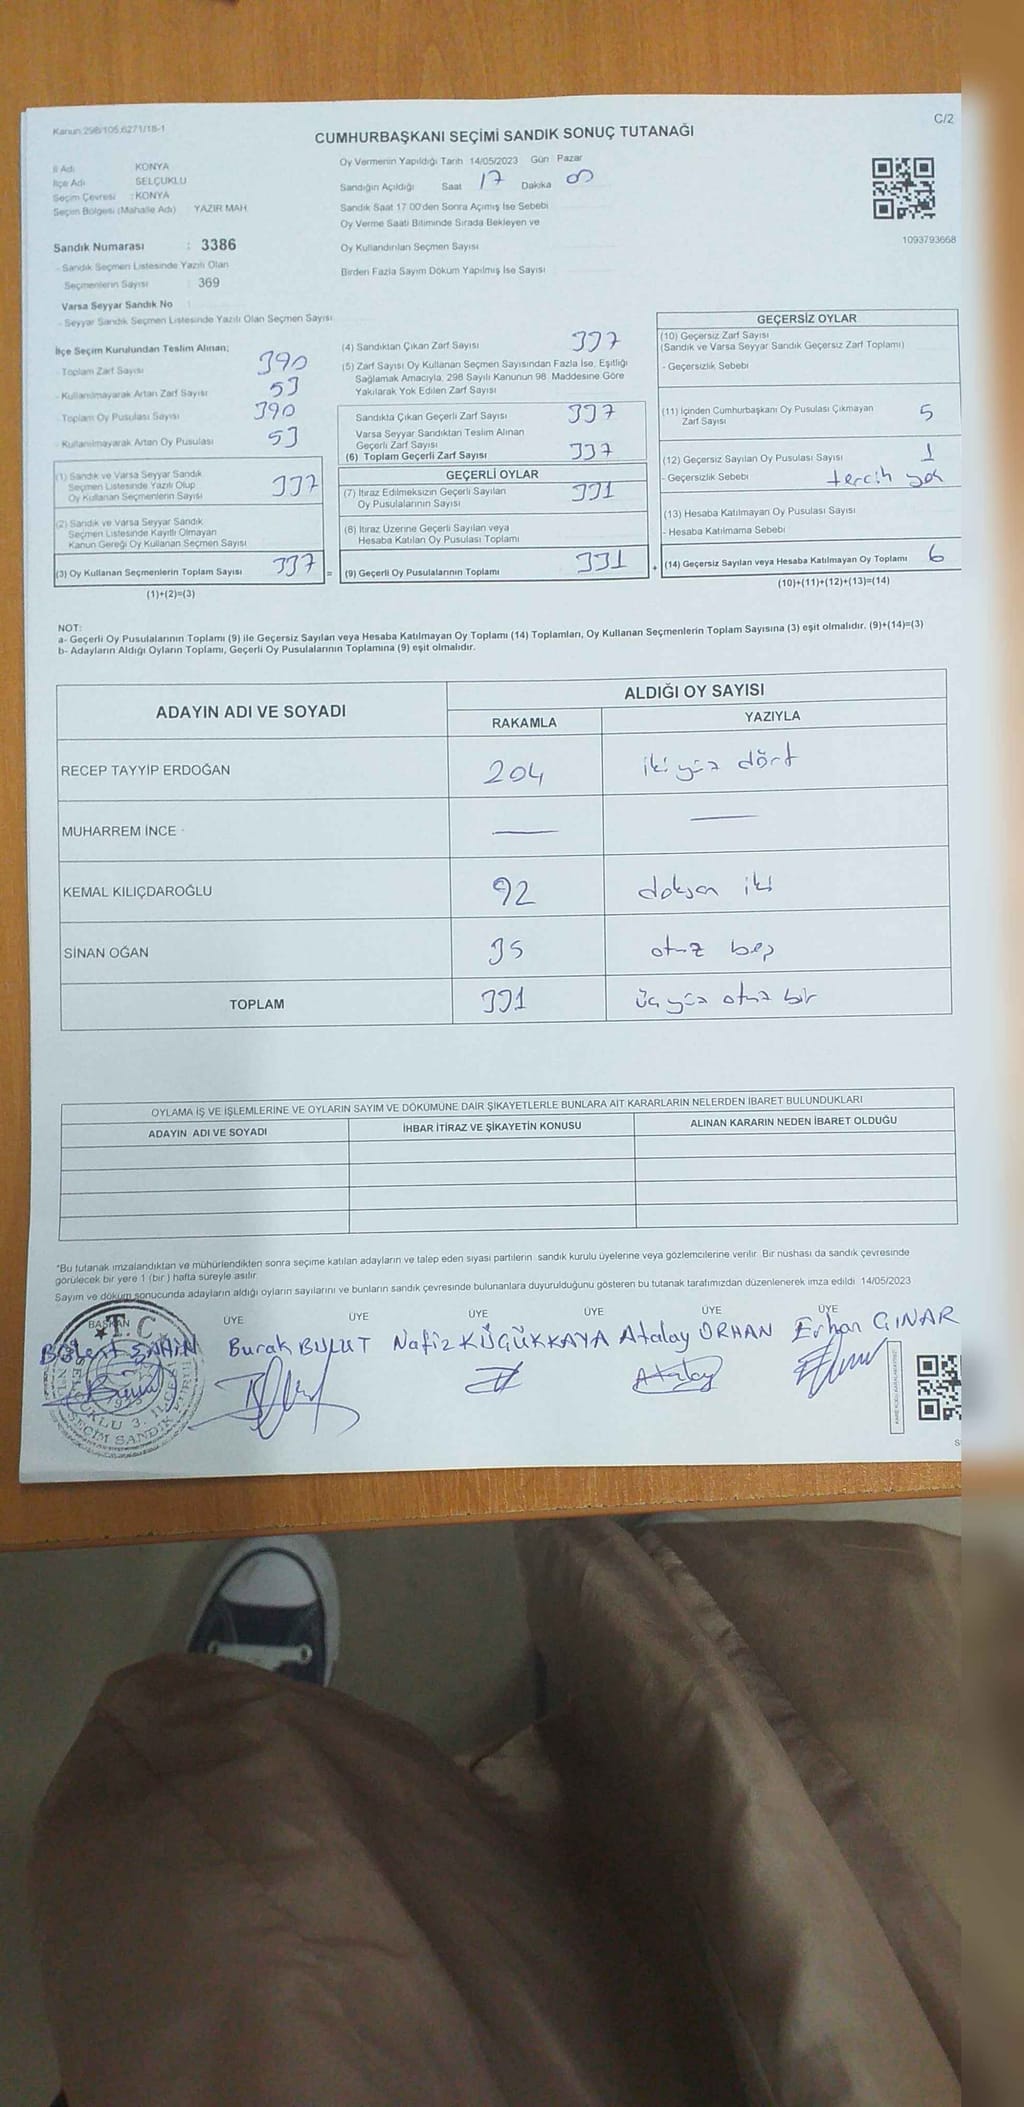 Kanun:298/105,6271/18-1
C/2
CUMHURBAŞKANI SEÇİMİ SANDIK SONUÇ TUTANAĞI
İl Adı KONYA
İlçe Adı SELÇUKLU
Seçim Çevresi : KONYA
Seçim Bölgesi (Mahalle Adı) YAZIR MAH.
Sandık Numarası : 3386
- Sandık Seçmen Listesinde Yazılı Olan
Seçmenlerin Sayısı : 369
Varsa Seyyar Sandık No :
- Seyyar Sandık Seçmen Listesinde Yazılı Olan Seçmen Sayısı
Oy Vermenin Yapıldığı Tarih 14/05/2023 Gün Pazar
Sandığın Açıldığı Saat 17 Dakika
Sandık Saat 17.00'den Sonra Açımış İse Sebebi
Oy Verme Saati Bitiminde Sırada Bekleyen ve
Oy Kullandırılan Seçmen Sayısı
Birden Fazla Sayım Döküm Yapılmış İse Sayısı
1093793668
İlçe Seçim Kurulundan Teslim Alınan;
- Toplam Zarf Sayısı 390
- Kullanılmayarak Artan Zarf Sayısı 53
- Toplam Oy Pusulası Sayısı 390
- Kullanılmayarak Artan Oy Pusulası 53
(1) Sandık ve Varsa Seyyar Sandık
Seçmen Listesinde Yazılı Olup
Oy Kullanan Seçmenlerin Sayısı 337
(2) Sandık ve Varsa Seyyar Sandık
Seçmen Listesinde Kayıtlı Olmayan
Kanun Gereği Oy Kullanan Seçmen Sayısı
(3) Oy Kullanan Seçmenlerin Toplam Sayısı 337 =
(1)+(2)=(3)
(4) Sandıktan Çıkan Zarf Sayısı 337
(5) Zarf Sayısı Oy Kullanan Seçmen Sayısından Fazla İse, Eşitliği
Sağlamak Amacıyla, 298 Sayılı Kanunun 98. Maddesine Göre
Yakılarak Yok Edilen Zarf Sayısı
Sandıkta Çıkan Geçerli Zarf Sayısı 337
Varsa Seyyar Sandıktan Teslim Alınan
Geçerli Zarf Sayısı
(6) Toplam Geçerli Zarf Sayısı 337
GEÇERLİ OYLAR
(7) İtiraz Edilmeksizin Geçerli Sayılan
Oy Pusulalarının Sayısı 331
(8) İtiraz Üzerine Geçerli Sayılan veya
Hesaba Katılan Oy Pusulası Toplamı
(9) Geçerli Oy Pusulalarının Toplamı 331 +
GEÇERSİZ OYLAR
(10) Geçersiz Zarf Sayısı
(Sandık ve Varsa Seyyar Sandık Geçersiz Zarf Toplamı)
- Geçersizlik Sebebi
(11) İçinden Cumhurbaşkanı Oy Pusulası Çıkmayan
Zarf Sayısı 5
(12) Geçersiz Sayılan Oy Pusulası Sayısı 1
- Geçersizlik Sebebi tercih yok
(13) Hesaba Katılmayan Oy Pusulası Sayısı
- Hesaba Katılmama Sebebi
(14) Geçersiz Sayılan veya Hesaba Katılmayan Oy Toplamı 6
(10)+(11)+(12)+(13)=(14)
NOT:
a- Geçerli Oy Pusulalarının Toplamı (9) ile Geçersiz Sayılan veya Hesaba Katılmayan Oy Toplamı (14) Toplamları, Oy Kullanan Seçmenlerin Toplam Sayısına (3) eşit olmalıdır. (9)+(14)=(3)
b- Adayların Aldığı Oyların Toplamı, Geçerli Oy Pusulalarının Toplamına (9) eşit olmalıdır.
ADAYIN ADI VE SOYADI
ALDIĞI OY SAYISI
RAKAMLA YAZIYLA
RECEP TAYYİP ERDOĞAN 204 iki yüz dört
MUHARREM İNCE
KEMAL KILIÇDAROĞLU 92 doksan iki
SİNAN OĞAN 35 otuz beş
TOPLAM 331 üç yüz otuz bir
OYLAMA İŞ VE İŞLEMLERİNE VE OYLARIN SAYIM VE DÖKÜMÜNE DAİR ŞİKAYETLERLE BUNLARA AİT KARARLARIN NELERDEN İBARET BULUNDUKLARI
ADAYIN ADI VE SOYADI İHBAR İTİRAZ VE ŞİKAYETİN KONUSU ALINAN KARARIN NEDEN İBARET OLDUĞU
*Bu tutanak imzalandıktan ve mühürlendikten sonra seçime katılan adayların ve talep eden siyasi partilerin sandık kurulu üyelerine veya gözlemcilerine verilir. Bir nüshası da sandık çevresinde
görülecek bir yere 1 (bir ) hafta süreyle asılır.
Sayım ve döküm sonucunda adayların aldığı oyların sayılarını ve bunların sandık çevresinde bulunanlara duyurulduğunu gösteren bu tutanak tarafımızdan düzenlenerek imza edildi 14/05/2023
BAŞKAN ÜYE ÜYE ÜYE ÜYE ÜYE ÜYE
Bülent ŞAHİN Burak BULUT Nafiz KÜÇÜKKAYA Atalay ORHAN Erhan ÇINAR
Atalay
T.C